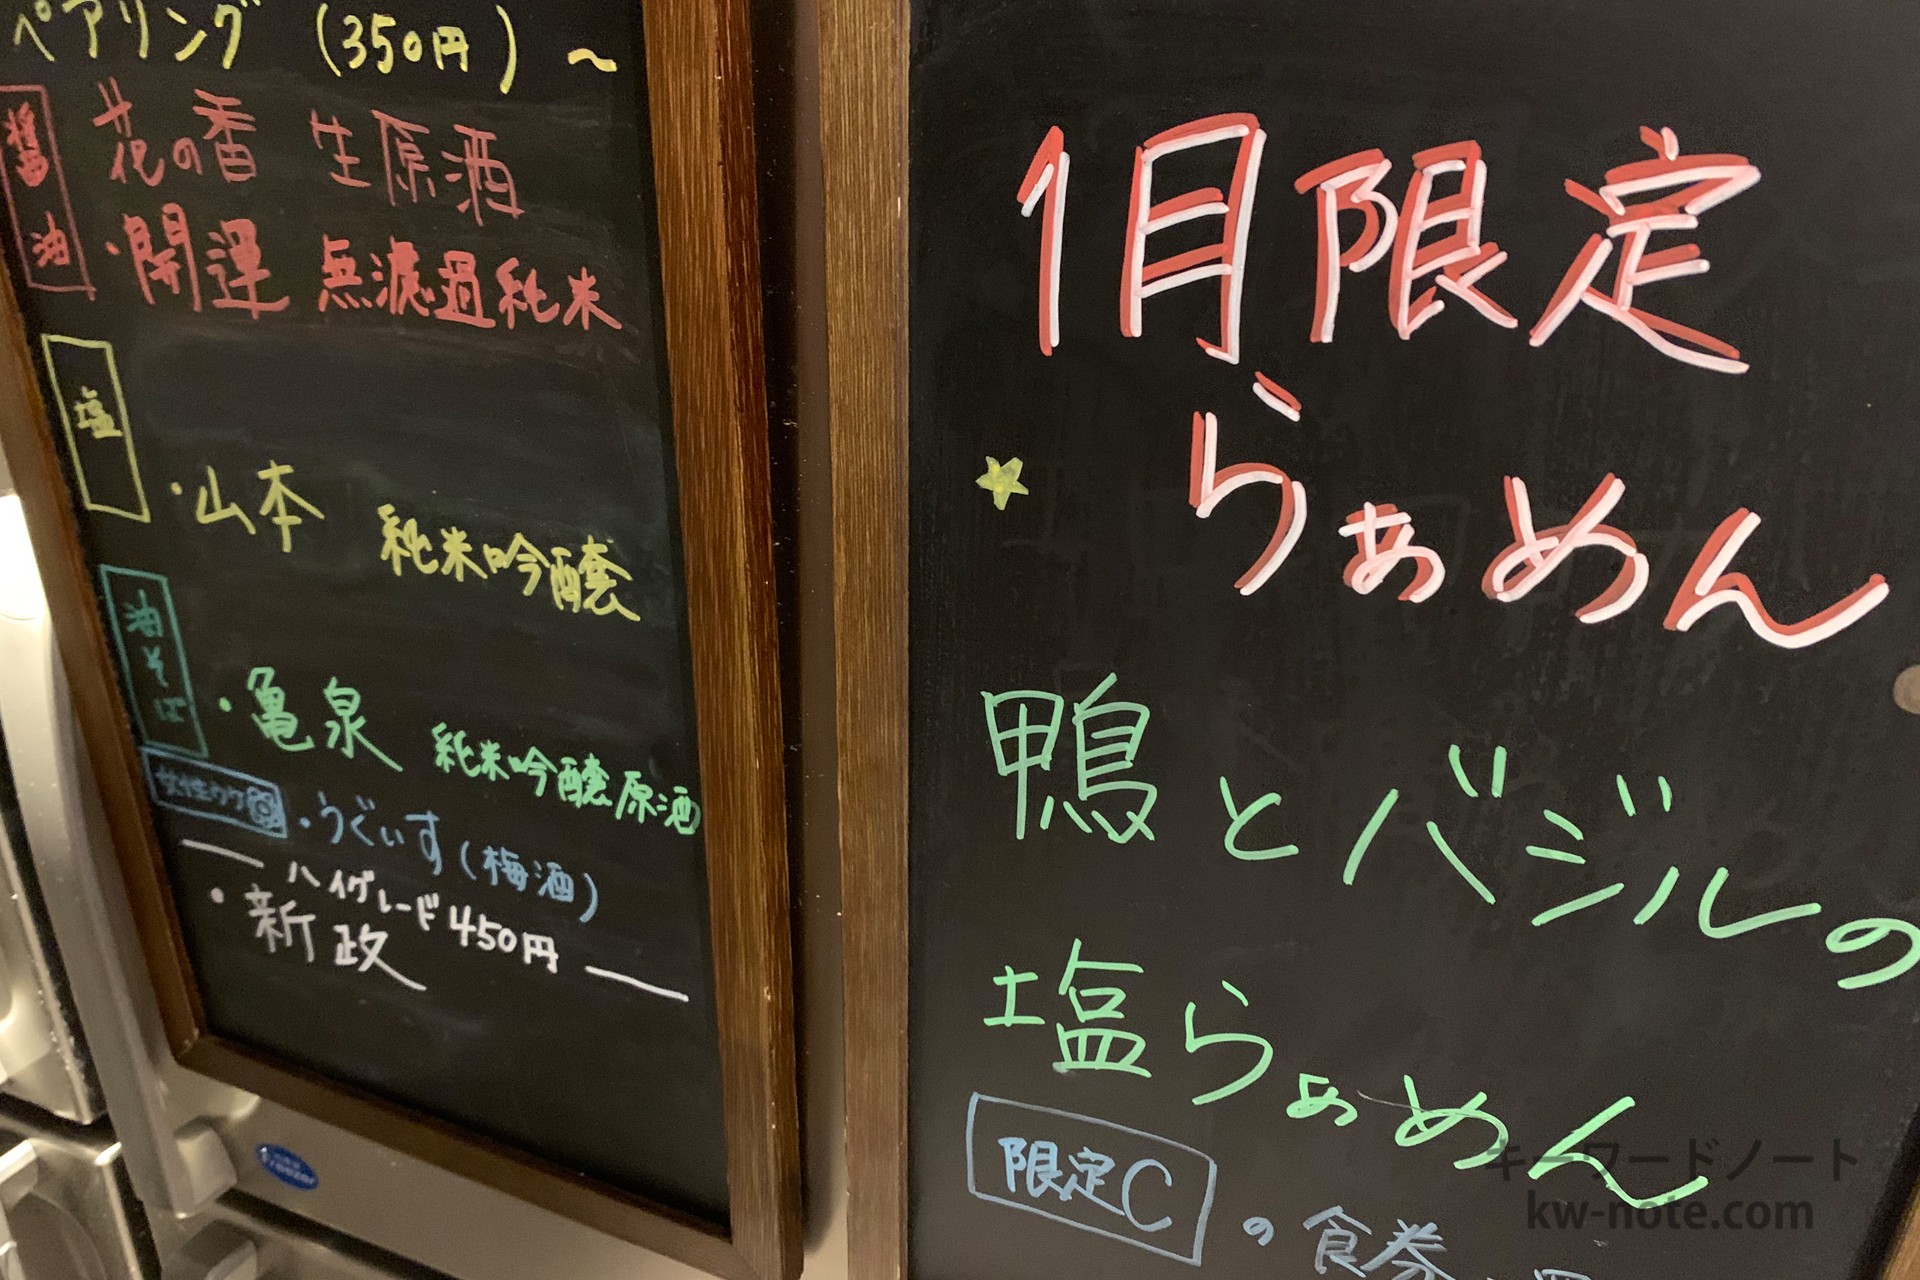 ペアリング (350円) ～
醤油
花の香 生原酒
・開運 無濾過純米
塩
・山本 純米吟醸
油そば
・亀泉 純米吟醸原酒
女性ウケ
・うぐいす(梅酒)
ハイグレード450円
・新政
1月限定
らぁめん
鴨とバジルの
塩らぁめん
限定C の食券
キーワードノート
kw-note.com